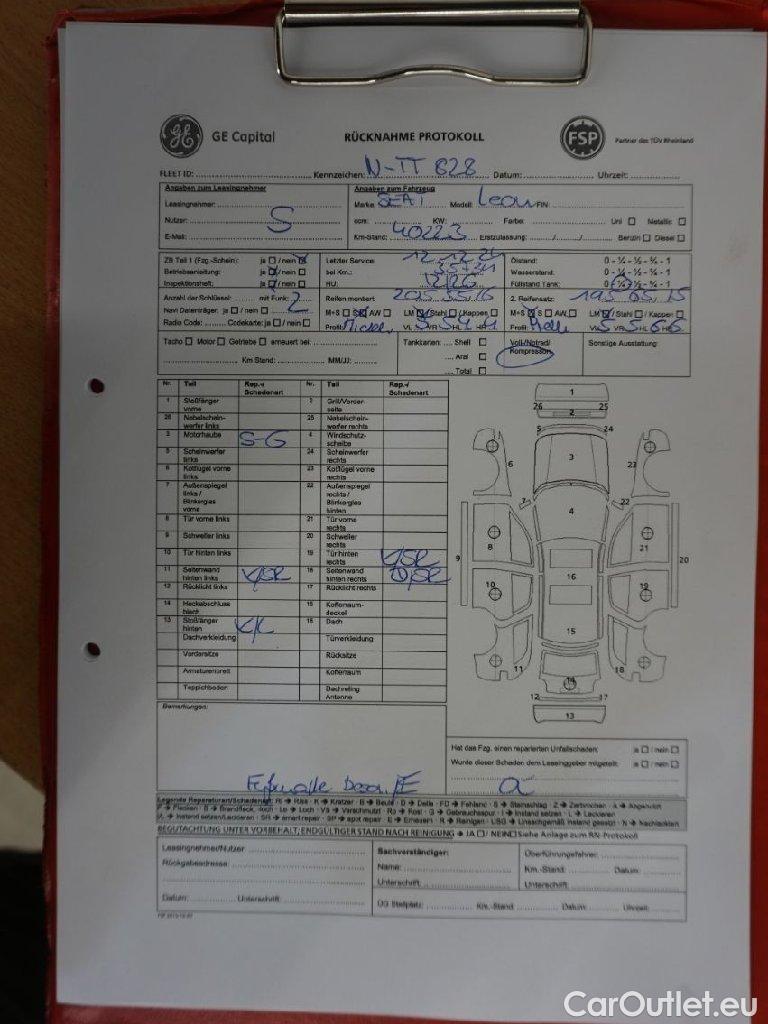 GE Capital RÜCKNAHME PROTOKOLL FSP Partner des TÜV Rheinland
FLEET ID: Kennzeichen: N-TT 828 Datum: Uhrzeit:
Angaben zum Leasingnehmer
Leasingnehmer:
Nutzer: S
E-Mail:
Angaben zum Fahrzeug
Marke SEAT Modell: Leon FIN:
ccm: KW: Farbe: Uni Metallic
Km-Stand: 40223 Erstzulassung: / / Benzin Diesel
ZB Teil 1 (Fzg.-Schein): ja / nein
Betriebsanleitung: ja / nein
Inspektionsheft: ja / nein
Letzter Service:
bei Km.:
HU:
Ölstand: 0 - ¼ - ½ - ¾ - 1
Wasserstand: 0 - ¼ - ½ - ¾ - 1
Füllstand Tank: 0 - ¼ - ½ - ¾ - 1
Anzahl der Schlüssel: mit Funk: 2
Navi Datenträger: ja / nein
Radio Code: Codekarte: ja / nein
Reifen montiert 205 55 16
M+S AW LM / Stahl / Kappen
Profil: VL VR HL HR
2. Reifensatz: 195 65 15
M+S AW LM / Stahl / Kappen
Profil: VL 5 VR 5 HL 6 HR 6
Tacho Motor Getriebe erneuert bei:
Km Stand: MM/JJ:
Tankkarten: Shell
Aral
Total
Voll-/Notrad/
Kompressor
Sonstige Ausstattung:
Nr. Teil Rep.-/ Schadenart Nr. Teil Rep.-/ Schadenart
1 Stoßfänger vorne 2 Grill/Vorderseite
26 Nebelscheinwerfer links 25 Nebelscheinwerfer rechts
3 Motorhaube S-G 4 Windschutzscheibe
5 Scheinwerfer links 24 Scheinwerfer rechts
6 Kotflügel vorne links 23 Kotflügel vorne rechts
7 Außenspiegel links / Blinkerglas vorne 22 Außenspiegel rechts / Blinkerglas hinten
8 Tür vorne links 21 Tür vorne rechts
9 Schweller links 20 Schweller rechts
10 Tür hinten links 19 Tür hinten rechts K/SR
11 Seitenwand hinten links K/SR 18 Seitenwand hinten rechts D/SR
12 Rücklicht links 17 Rücklicht rechts
14 Heckabschlussblech 15 Kofferraumdeckel
13 Stoßfänger hinten K/L 16 Dach
Dachverkleidung Türverkleidung
Vordersitze Rücksitze
Armaturenbrett Kofferraum
Teppichboden Dachreling Antenne
1
26 25
2
5 24
3
6 23
7 22
4
8 21
9 20
10 19
16
15
11 18
14
12 17
13
Bemerkungen:
Hat das Fzg. einen reparierten Unfallschaden: ja / nein
Wurde dieser Schaden dem Leasinggeber mitgeteilt: ja / nein
Legende Reparaturen/Schadenart: Ri → Riss · K → Kratzer · B → Beule · D → Delle · FD → Fehlanz · S → Steinschlag · Z → Zerbrochen · A → Angefahrt
BEGUTACHTUNG UNTER VORBEHALT, ENDGÜLTIGER STAND NACH REINIGUNG → JA / NEIN Siehe Anlage zum RN-Protokoll
Leasingnehmer/Nutzer
Rückgabeadresse:
Datum: Unterschrift:
Sachverständiger:
Name:
Unterschrift:
Überführungsfahrer:
Km.-Stand: Datum:
Unterschrift:
OG Stellplatz: Km.-Stand: Datum: Uhrzeit:
CarOutlet.eu